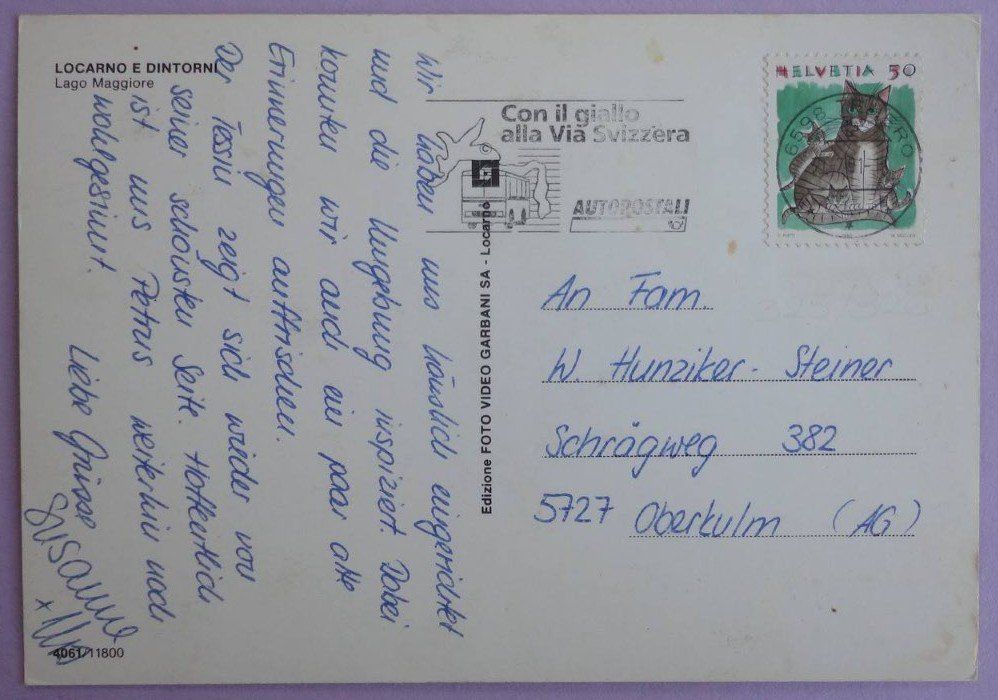 LOCARNO E DINTORNI
Lago Maggiore
Wir haben uns häuslich eingerichtet
und die Umgebung inspiziert. Dabei
konnten wir auch ein paar alte
Erinnerungen auffrischen.
Der Tessin zeigt sich wieder von
seiner schönsten Seite. Hoffentlich
ist uns Petrus weiterhin noch
wohlgesinnt.
Liebe Grüsse
Susanne
4061/11800
Edizione FOTO VIDEO GARBANI SA - Locarno
Con il giallo
alla Via Svizzera
AUTOPOSTALI
HELVETIA 50
6598 TENERO
An Fam.
W. Hunziker-Steiner
Schrägweg 382
5727 Oberkulm (AG)